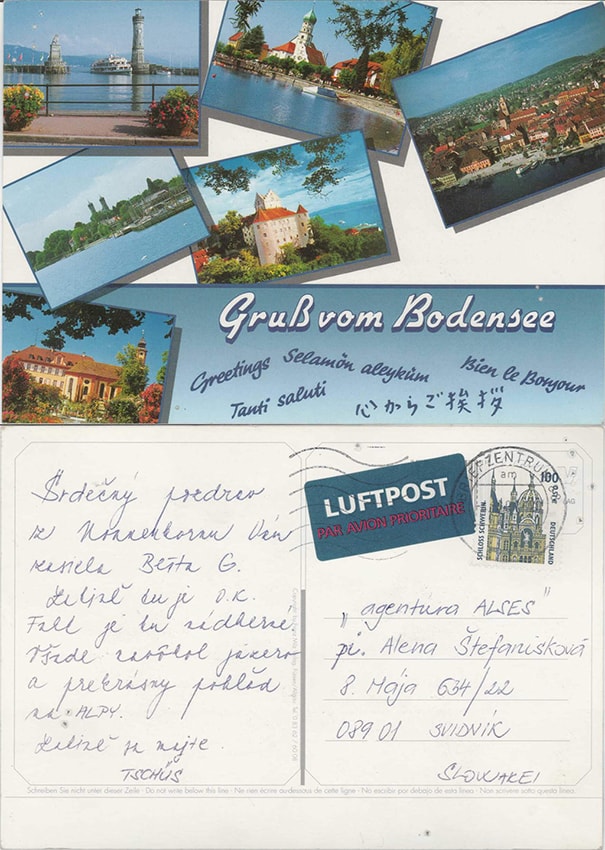 Gruß vom Bodensee
Greetings Selamön aleyküm Bien le Bonjour
Tanti saluti 心からご挨拶
Srdečný pozdrav
z Nonnenhornu Vám
Beáta G.
tu je O.K.
je tu nádherne
Všade jazero
a prekrásny pohľad
na ALPY.
sa majte.
TSCHÜS
LUFTPOST
PAR AVION PRIORITAIRE
100
SCHLOSS SCHWERIN
DEUTSCHLAND
am
„agentúra ALSES"
pí. Alena Štefanisková
8. Mája 634/22
089 01 SVIDNÍK
SLOWAKEI
Schreiben Sie nicht unter dieser Zeile · Do not write below this line · Ne rien écrire au-dessous de cette ligne · No escribir por debajo de esta línea · Non scrivere sotto questa linea